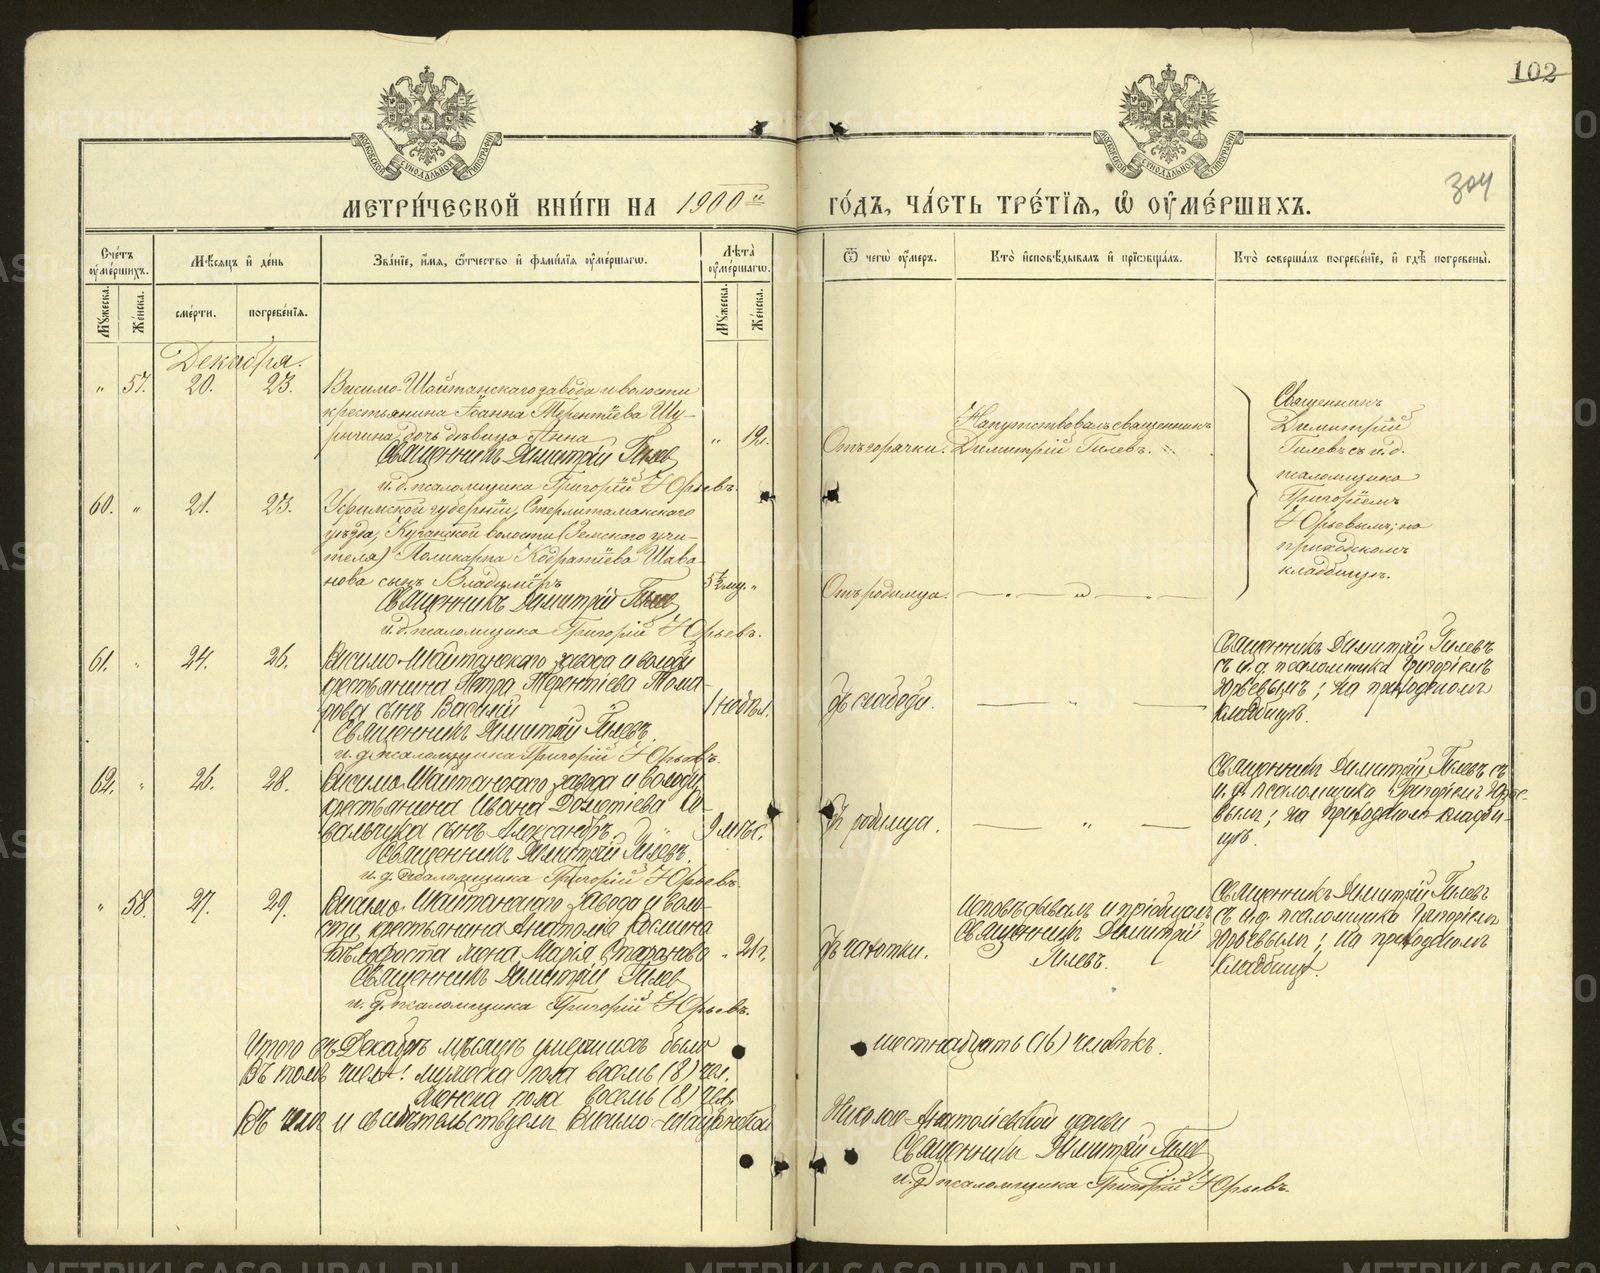 102
304
МОСКОВСКОЙ СѴНОДАЛЬНОЙ ТИПОГРАФІИ
МОСКОВСКОЙ СѴНОДАЛЬНОЙ ТИПОГРАФІИ
МЕТРИ́ЧЕСКОЙ КНИ́ГИ НА 1900й ГО́ДЪ, ЧА́СТЬ ТРЕ́ТІѦ, Ѡ҆ ОУ҆МЕ́РШИХЪ.
Сче́тъ оу҆ме́ршихъ.
Мꙋ́жеска.
Же́нска.
Мѣ́сѧцъ и҆ де́нь
сме́рти.
погребе́нїѧ.
Зва́нїе, и҆́мѧ, ѻ҆́тчество и҆ фами́лїѧ оу҆ме́ршагѡ.
Лѣ́та оу҆ме́ршагѡ.
Мꙋ́жеска.
Же́нска.
Ѿ чегѡ̀ оу҆́меръ.
Кто̀ и҆сповѣ́дывалъ и҆ прїѡбща́лъ.
Кто̀ соверша́лъ погребе́нїе, и҆ гдѣ̀ погребены̀.
Декабря.
„ 57. 20. 23.
Висимо-Шайтанскаго завода и волости
крестьянина Іоанна Терентіева Шу-
рыгина дочь дѣвица Анна
„ 19л.
Священникъ Димитрій Гилев
и. д. псаломщика Григорій Юрьевъ.
Отъ горячки.
Напутствовалъ священникъ
Димитрій Гилевъ.
Священникъ
Димитрій
Гилевъ съ и. д.
псаломщика
Григоріемъ
Юрьевымъ; на
приходскомъ
кладбищѣ.
60. „ 21. 23.
Уфимской губерніи, Стерлитамакскаго
уѣзда, волости (Земскаго учи-
теля) Поликарпа Кодратіева Шаба-
нова сынъ Владиміръ
5½ мц. „
Священникъ Димитрій Гилев
и. д. псаломщика Григорій Юрьевъ.
Отъ родимца. — „ — „ —
61. „ 24. 26.
Висимо-Шайтанскаго завода и волости
крестьянина Петра Терентіева Тома-
рова сынъ Василій
1 недѣл.
Священникъ Димитрій Гилевъ.
и. д. псаломщика Григорій Юрьевъ.
Отъ слабости. — „ —
Священникъ Димитрій Гилевъ
съ и. д. псаломщика Григоріемъ
Юрьевымъ; на приходскомъ
кладбищѣ.
62. „ 26. 28.
Висимо-Шайтанскаго завода и волости
крестьянина Ивана
сынъ Александръ.
9 мѣс.
Священникъ Димитрій Гилевъ.
и. д. псаломщика Григорій Юрьевъ.
Отъ родимца. — „ —
Священникъ Димитрій Гилевъ съ
и. д. псаломщика Григоріемъ Юрье-
вымъ; на приходскомъ кладби-
щѣ.
„ 58. 27. 29.
Висимо-Шайтанскаго завода и воло-
сти крестьянина Анатолія Космина
жена Марія
„ 21г.
Священникъ Димитрій Гилев
и. д. псаломщика Григорій Юрьевъ.
Отъ чахотки.
Исповѣдывалъ и пріобщалъ
Священникъ Димитрій
Гилевъ.
Священникъ Димитрій Гилевъ
съ и. д. псаломщика Григоріемъ
Юрьевымъ; на приходскомъ
кладбищѣ.
Итого въ Декабрѣ мѣсяцѣ умершихъ было шестнадцать (16) человѣкъ.
Въ томъ числѣ: мужеска пола восемь (8) чел.
женска пола восемь (8) чел.
Въ чемъ и свидѣтельствуемъ Висимо-Шайтанской Николае-Анатоліевской церкви
Священникъ Димитрій Гилев
и. д. псаломщика Григорій Юрьевъ.